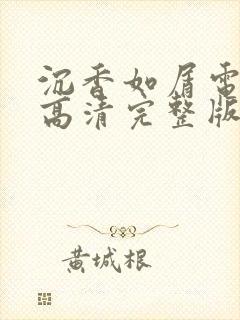 沉香如屑电
高清完整版
黄城根